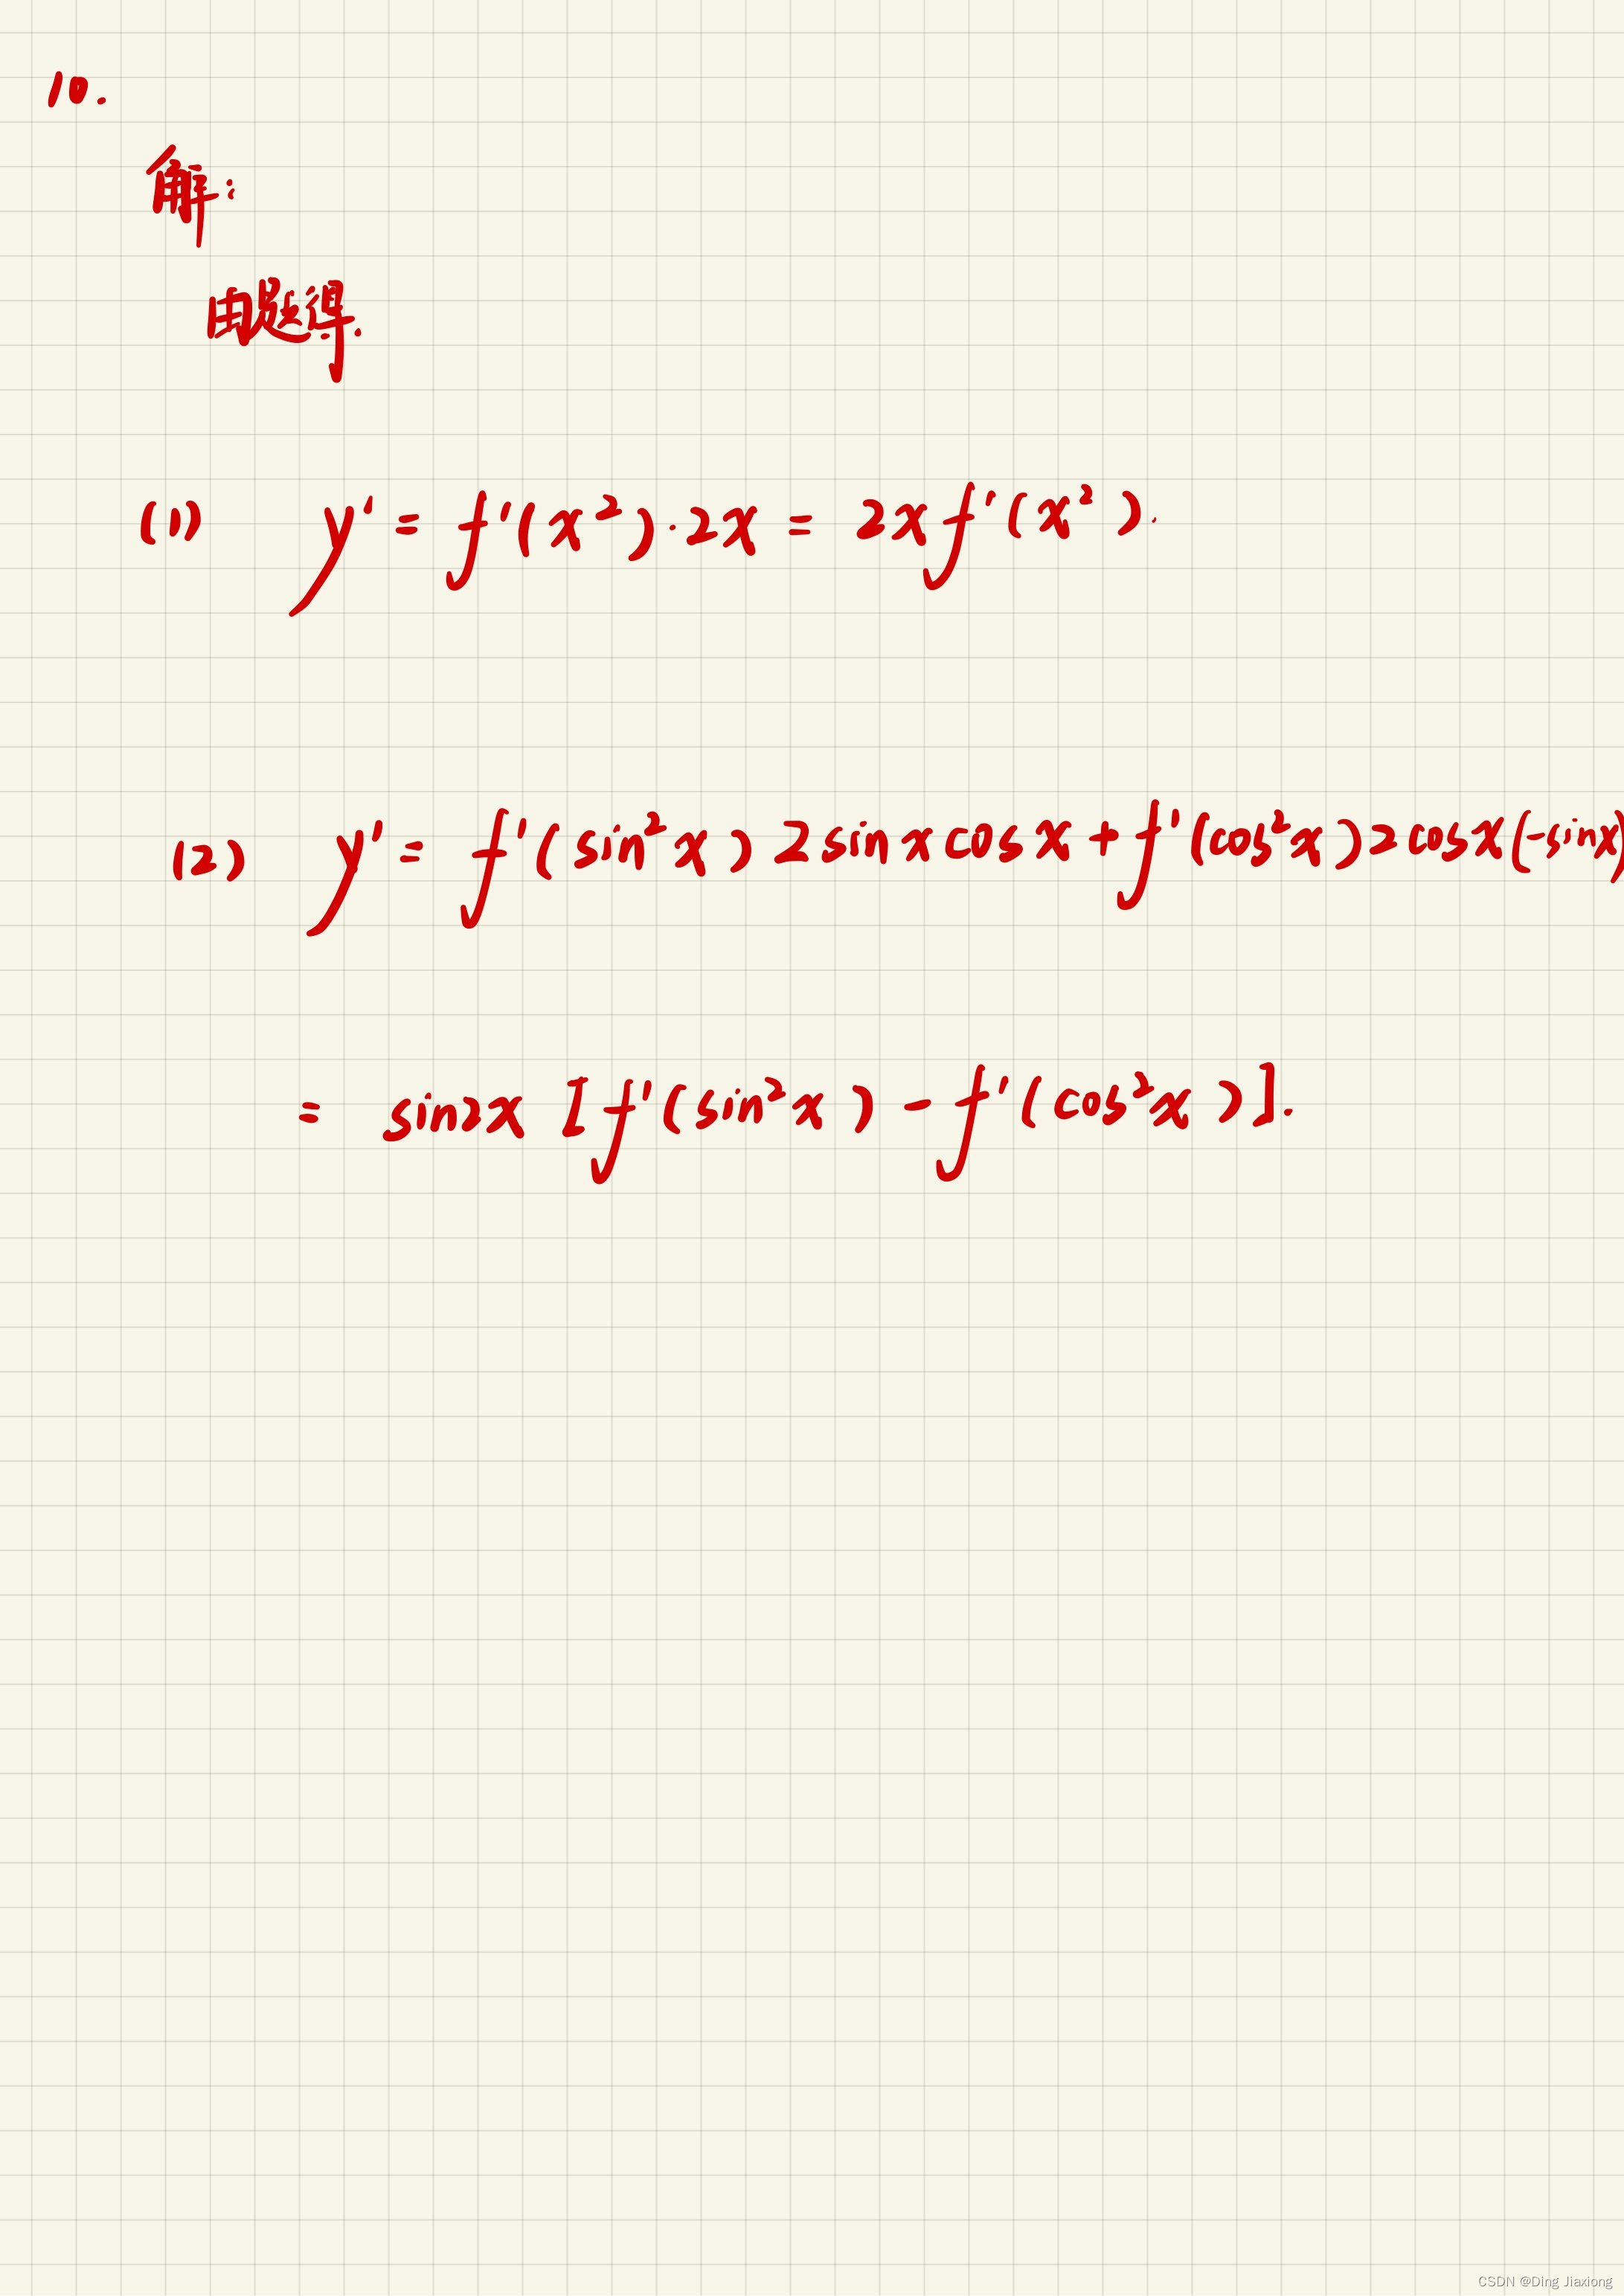 10.
解:
由题得.
(1) y' = f'(x²)·2x = 2x f'(x²).
(2) y' = f'(sin²x) 2 sin x cos x + f'(cos²x) 2 cos x (-sin x)
= sin2x [f'(sin²x) - f'(cos²x)].
CSDN @Ding Jiaxiong